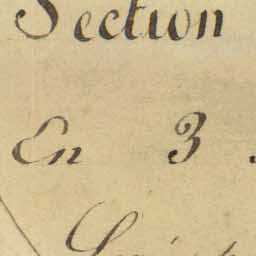 Section
En 3.